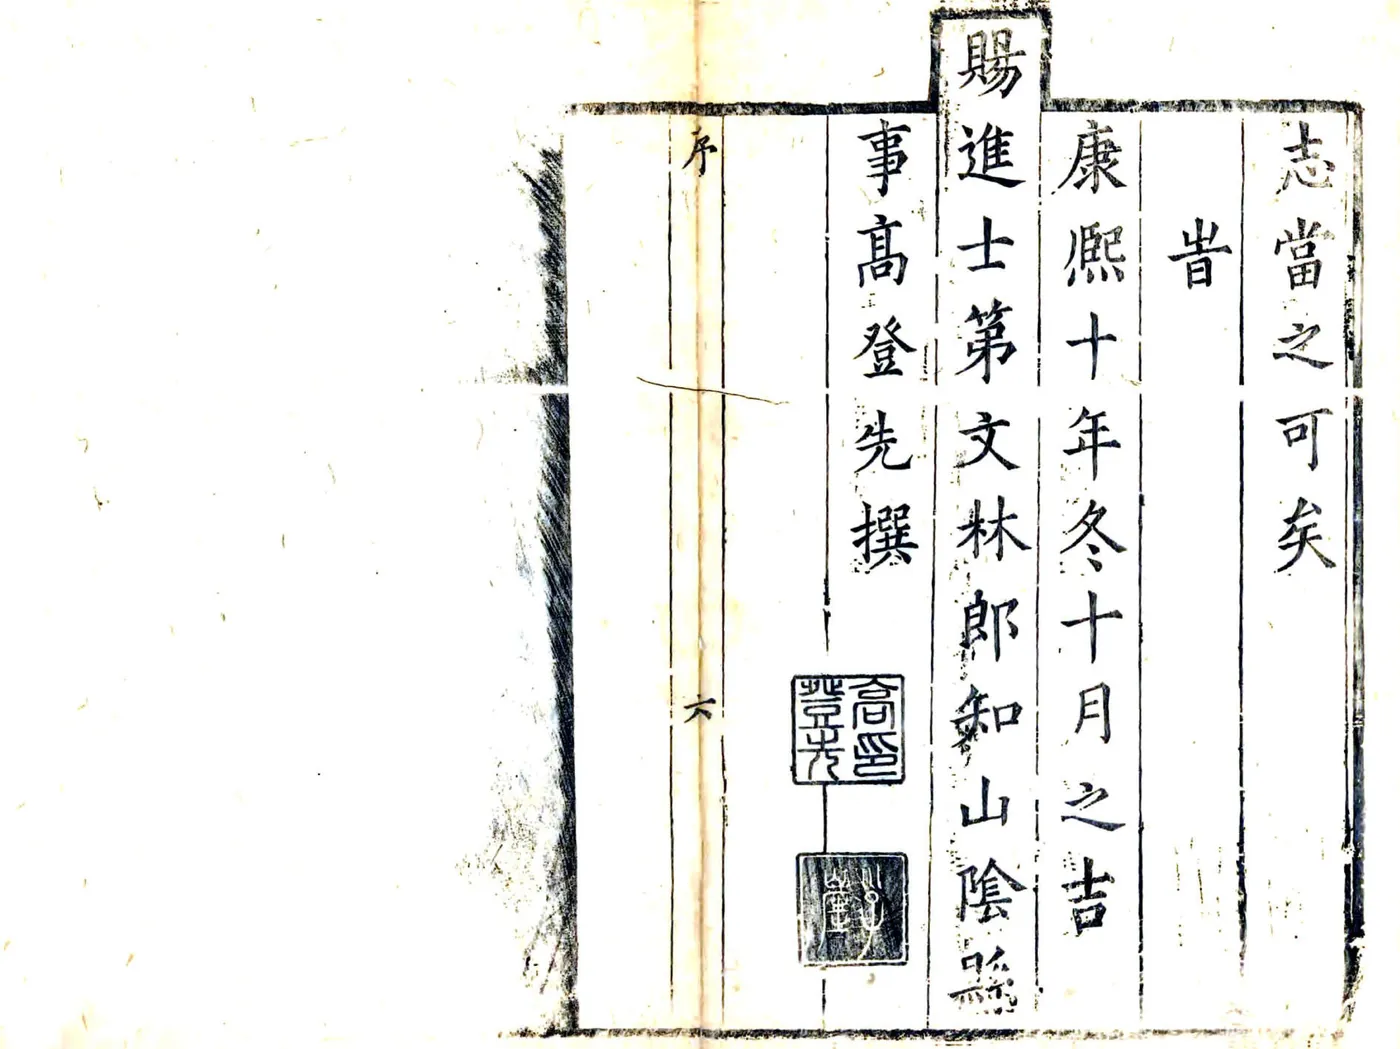 志當之可矣
旹
康熙十年冬十月之吉
賜進士第文林郎知山陰縣
事高登先撰
高印登先
序
六